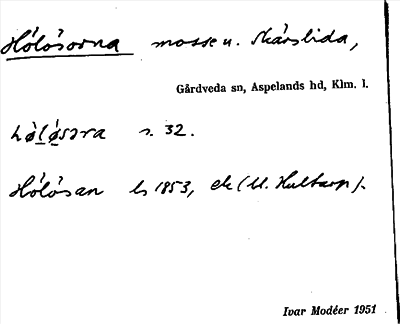 Hólósorna mosse u. Skärslida,
Gårdveda sn, Aspelands hd, Klm. l.
hø̀løsəra s. 32.
Hólósan ls 1853, ek (U. Hultarp).
Ivar Modéer 1951